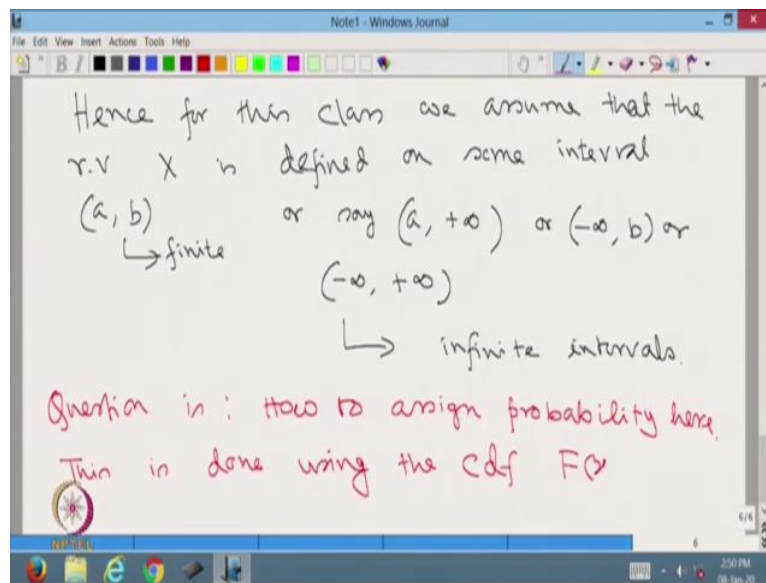 Note1 - Windows Journal
File Edit View Insert Actions Tools Help
Hence for this class we assume that the
r.v X is defined on some interval
(a, b) or say (a, +∞) or (-∞, b) or
↳ finite
(-∞, +∞)
↳ infinite intervals.
Question is : How to assign probability here.
This is done using the cdf F(x
6/6
NPTEL
6
2:50 PM
08-Jan-20